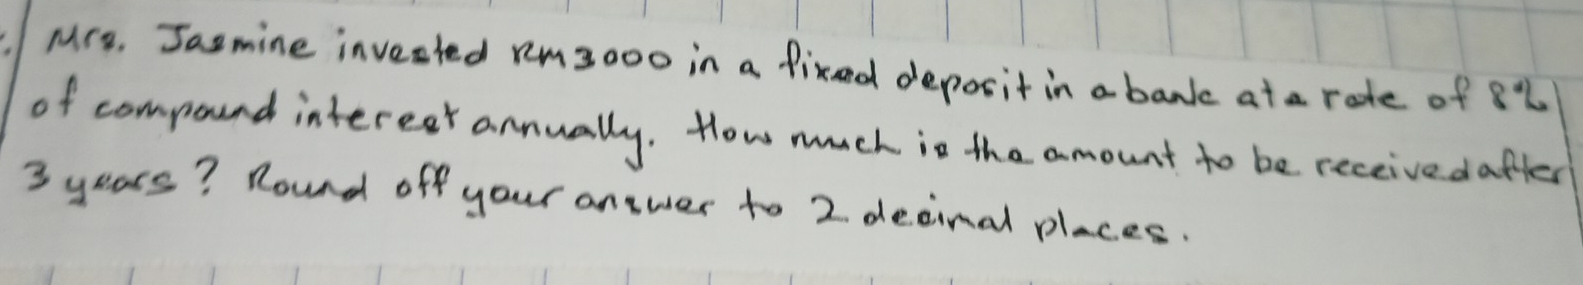 Mrs. Jasmine invested RM3000 in a fixed deposit in a bank at a rate of 8%
of compound interest annually. How much is the amount to be received after
3 years? Round off your answer to 2 decimal places.